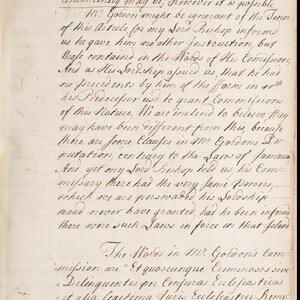 may be; However it is possible
Mr Gordon might be ignorant of the Tenor
of this Article for my Lord Bishop informs
us he gave him no other Instruction, but
those contained in the Words of his Comission;
And as His Lordship assured us, that he had
no precedents by him of the Form in wch
his Predecessor us'd to grant Commissions
of this Nature, We are enclined to believe they
may have been different from this, because
there are some Clauses in Mr Gordons De-
putation, contrary to the Laws of Jamaica
And yet my Lord Bishop told us, his Com-
missary there had the very same Powers,
which we are perswaded his Lordship
woud never have granted, had he been inform'd
there were such Laws in force in that Island
The Words in Mr Gordon's com-
mission are "Et quoscunque Criminosos sive
Delinquentes per Censuras Ecclesiasticas
et alia legitima Juris Ecclesiastici